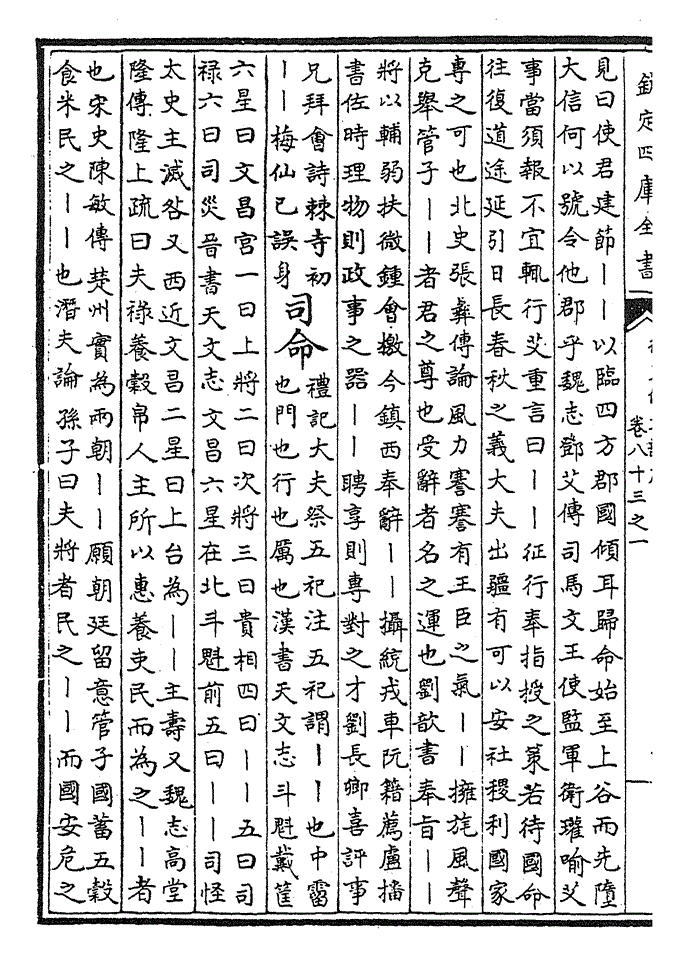 欽定四庫全書
卷八十三之一
見曰使君建節丨丨以臨四方郡國傾耳歸命始至上谷而先墮
大信何以號令他郡乎魏志鄧艾傳司馬文王使監軍衛瓘喻艾
事當須報不宜輒行艾重言曰丨丨征行奉指授之策若待國命
往復道途延引日長春秋之義大夫出疆有可以安社稷利國家
專之可也北史張彝傳論風力謇謇有王臣之氣丨丨擁旄風聲
克舉管子丨丨者君之尊也受辭者名之運也劉歆書奉旨丨丨
將以輔弱扶微鍾會檄今鎮西奉辭丨丨攝統戎車阮籍薦盧播
書佐時理物則政事之器丨丨聘享則專對之才劉長卿喜評事
兄拜會詩棘寺初
丨丨梅仙已誤身
司命
禮記大夫祭五祀注五祀謂丨丨也中霤
也門也行也厲也漢書天文志斗魁戴筐
六星曰文昌宮一曰上將二曰次將三曰貴相四曰丨丨五曰司
祿六曰司災晉書天文志文昌六星在北斗魁前五曰丨丨司怪
太史主滅咎又西近文昌二星曰上台為丨丨主壽又魏志高堂
隆傳隆上疏曰夫祿養穀帛人主所以惠養吏民而為之丨丨者
也宋史陳敏傳楚州實為兩朝丨丨願朝廷留意管子國蓄五穀
食米民之丨丨也潛夫論孫子曰夫將者民之丨丨而國安危之